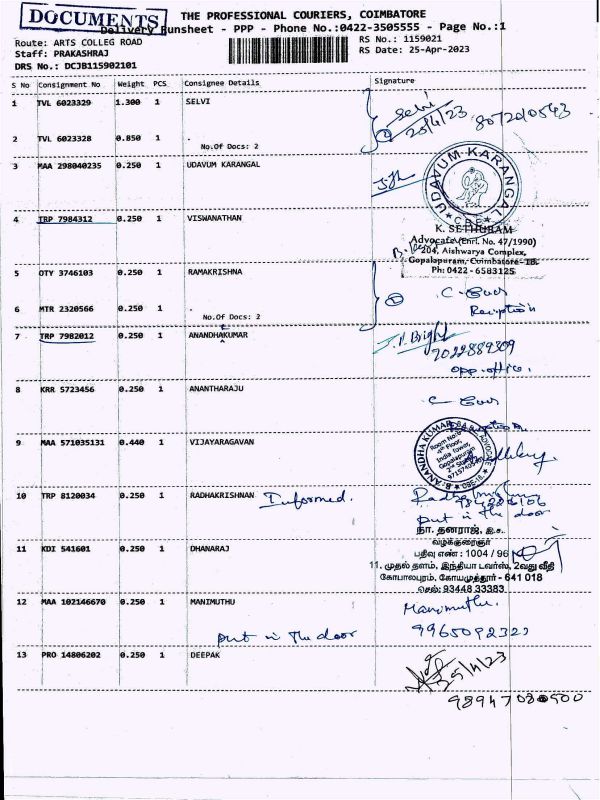 DOCUMENTS
THE PROFESSIONAL COURIERS, COIMBATORE
Delivery Runsheet - PPP - Phone No.:0422-3505555 - Page No.:1
Route: ARTS COLLEG ROAD
RS No.: 1159021
Staff: PRAKASHRAJ
RS Date: 25-Apr-2023
DRS No.: DCJB115902101
S No Consignment No Weight PCS Consignee Details Signature
1 TVL 6023329 1.300 1 SELVI
Selvi
25/4/23 8072010543
2 TVL 6023328 0.850 1 .
No.Of Docs: 2
3 MAA 298040235 0.250 1 UDAVUM KARANGAL
UDAVUM KARANGAL
CBE
4 TRP 7984312 0.250 1 VISWANATHAN
K. SETHURAM
Advocate (Enrl. No. 47/1990)
204, Aishwarya Complex,
Gopalapuram, Coimbatore-18.
Ph: 0422 - 6583125
5 OTY 3746103 0.250 1 RAMAKRISHNA
6 MTR 2320566 0.250 1 .
Reception
No.Of Docs: 2
7 TRP 7982012 0.250 1 ANANDHAKUMAR
J.P. Bright
9022889309
opp.office.
8 KRR 5723456 0.250 1 ANANTHARAJU
9 MAA 571035131 0.440 1 VIJAYARAGAVAN
B. ANANDHA KUMAR B.A.B.L. ADVOCATE
4th Floor,
India Tower,
Gopalapuram
2nd Street
CBE-18
10 TRP 8120034 0.250 1 RADHAKRISHNAN Informed.
put in the door
11 KDI 541601 0.250 1 DHANARAJ
நா. தனராஜ், இ.ச.
வழக்குரைஞர்
பதிவு எண் : 1004 / 96
11. முதல் தளம், இந்தியா டவர்ஸ், 2வது வீதி
கோபாலபுரம், கோயமுத்தூர் - 641 018
செல்: 93448 33383
12 MAA 102146670 0.250 1 MANIMUTHU
Manimuthu.
put in the door 9965092322
13 PRO 14806202 0.250 1 DEEPAK
25/4/23